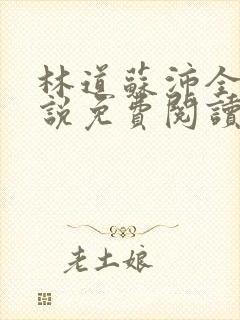 林道蘇沛全
說免費閱讀
老土娘